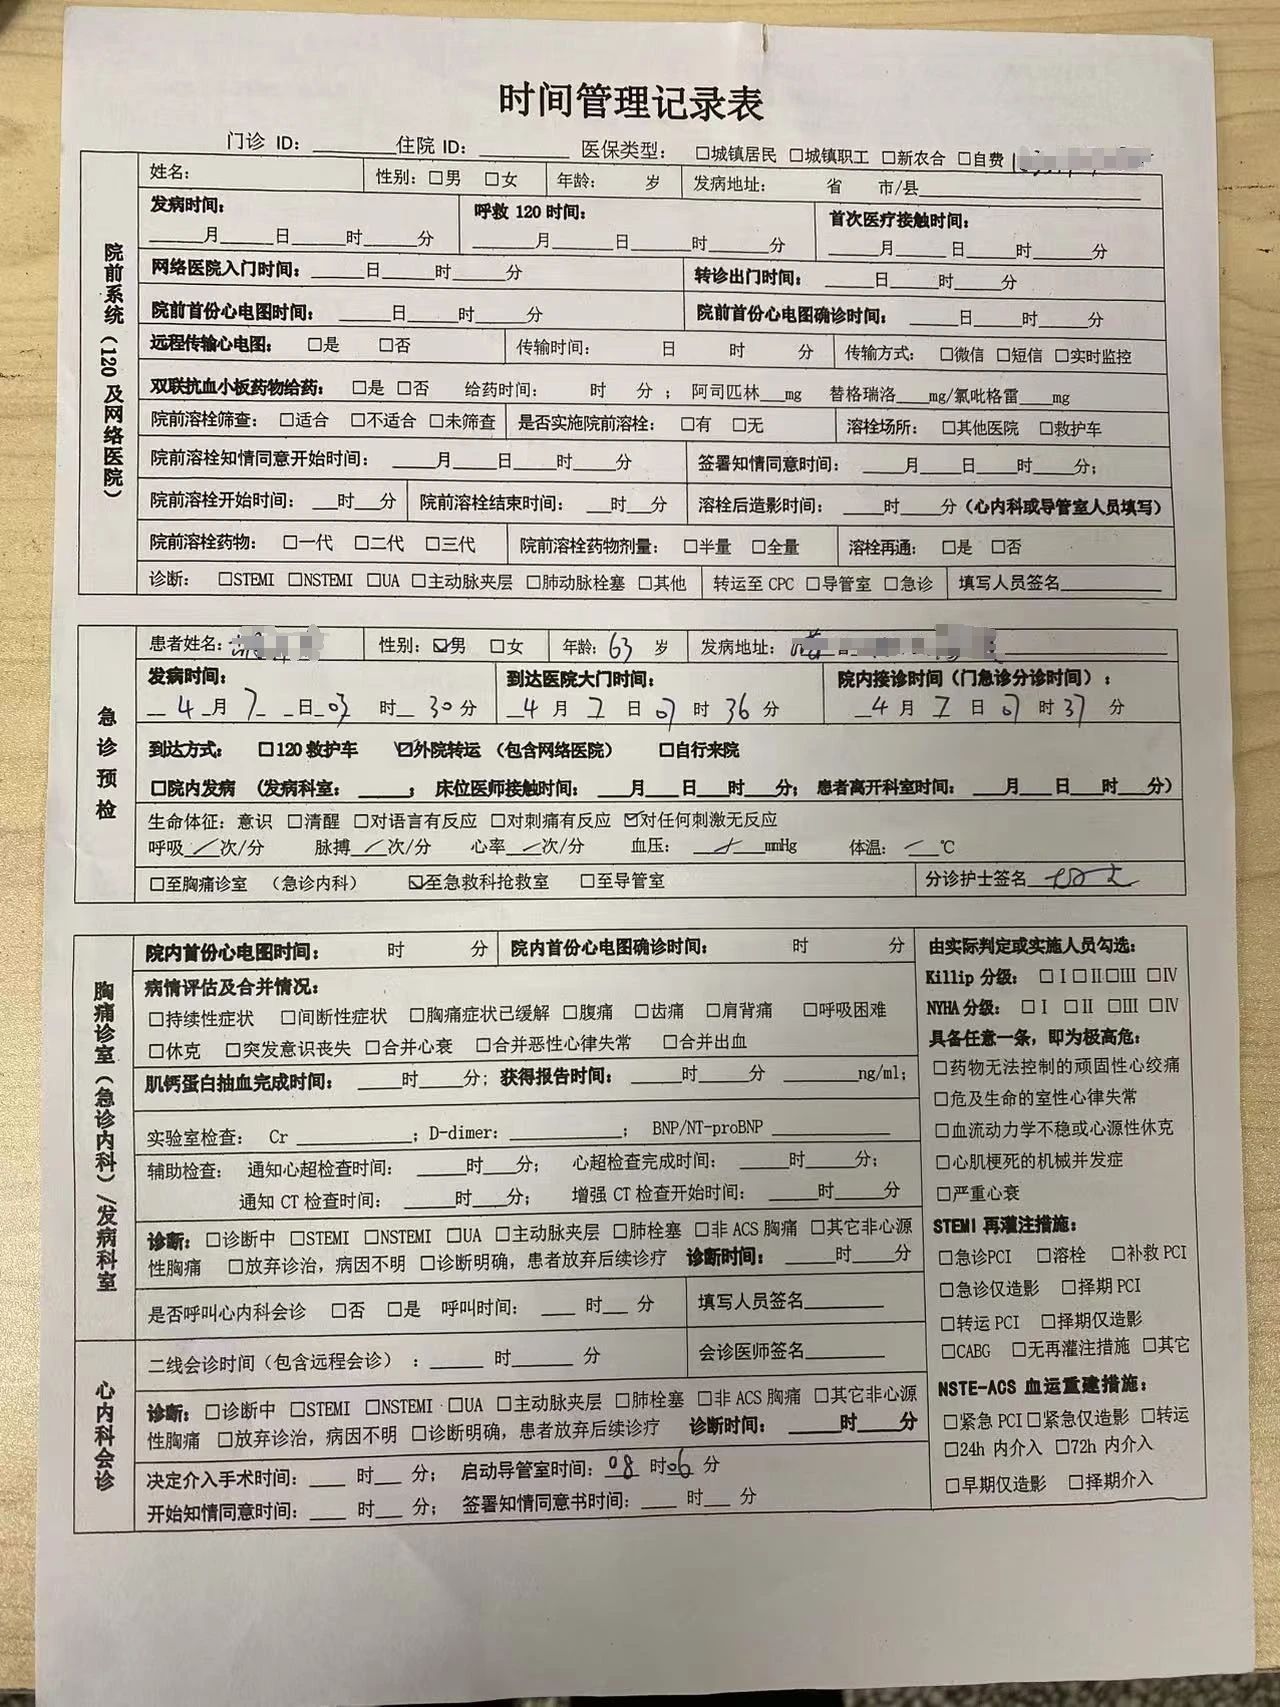 时间管理记录表
门诊 ID：________ 住院 ID：________ 医保类型： □城镇居民 □城镇职工 □新农合 □自费
院前系统（120 及网络医院）
姓名： 性别：□男 □女 年龄： 岁 发病地址： 省 市/县________
发病时间： 呼救 120 时间： 首次医疗接触时间：
____月____日____时____分 ____月____日____时____分 ____月____日____时____分
网络医院入门时间：____日____时____分 转诊出门时间：____日____时____分
院前首份心电图时间：____日____时____分 院前首份心电图确诊时间：____日____时____分
远程传输心电图： □是 □否 传输时间： 日 时 分 传输方式：□微信 □短信 □实时监控
双联抗血小板药物给药：□是 □否 给药时间： 时 分； 阿司匹林___mg 替格瑞洛___mg/氯吡格雷___mg
院前溶栓筛查：□适合 □不适合 □未筛查 是否实施院前溶栓：□有 □无 溶栓场所：□其他医院 □救护车
院前溶栓知情同意开始时间：____月____日____时____分 签署知情同意时间：____月____日____时____分；
院前溶栓开始时间：___时___分 院前溶栓结束时间：___时___分 溶栓后造影时间：____时____分（心内科或导管室人员填写）
院前溶栓药物：□一代 □二代 □三代 院前溶栓药物剂量：□半量 □全量 溶栓再通：□是 □否
诊断： □STEMI □NSTEMI □UA □主动脉夹层 □肺动脉栓塞 □其他 转运至 CPC □导管室 □急诊 填写人员签名________
急诊预检
患者姓名： 性别：☑男 □女 年龄：63 岁 发病地址：
发病时间： 到达医院大门时间： 院内接诊时间（门急诊分诊时间）：
4月7日03时30分 4月7日07时36分 4月7日07时37分
到达方式： □120 救护车 ☑外院转运（包含网络医院） □自行来院
□院内发病（发病科室：____； 床位医师接触时间：____月____日____时____分；患者离开科室时间：____月____日____时____分）
生命体征：意识 □清醒 □对语言有反应 □对刺痛有反应 ☑对任何刺激无反应
呼吸 / 次/分 脉搏 / 次/分 心率 / 次/分 血压： / mmHg 体温： / ℃
□至胸痛诊室 （急诊内科） ☑至急救科抢救室 □至导管室 分诊护士签名
胸痛诊室（急诊内科）/发病科室
院内首份心电图时间： 时 分 院内首份心电图确诊时间： 时 分
病情评估及合并情况：
□持续性症状 □间断性症状 □胸痛症状已缓解 □腹痛 □齿痛 □肩背痛 □呼吸困难
□休克 □突发意识丧失 □合并心衰 □合并恶性心律失常 □合并出血
肌钙蛋白抽血完成时间：____时____分；获得报告时间：____时____分 ________ng/ml；
实验室检查： Cr ________；D-dimer：________； BNP/NT-proBNP ________
辅助检查： 通知心超检查时间：____时____分； 心超检查完成时间：____时____分；
通知 CT 检查时间：____时____分； 增强 CT 检查开始时间：____时____分
诊断：□诊断中 □STEMI □NSTEMI □UA □主动脉夹层 □肺栓塞 □非 ACS 胸痛 □其它非心源
性胸痛 □放弃诊治，病因不明 □诊断明确，患者放弃后续诊疗 诊断时间：____时____分
是否呼叫心内科会诊 □否 □是 呼叫时间：___时___分 填写人员签名________
心内科会诊
二线会诊时间（包含远程会诊）：____时____分 会诊医师签名________
诊断：□诊断中 □STEMI □NSTEMI □UA □主动脉夹层 □肺栓塞 □非 ACS 胸痛 □其它非心源
性胸痛 □放弃诊治，病因不明 □诊断明确，患者放弃后续诊疗 诊断时间：____时____分
决定介入手术时间：___时___分； 启动导管室时间：08时06分
开始知情同意时间：___时___分； 签署知情同意书时间：___时___分
由实际判定或实施人员勾选：
Killip 分级：□Ⅰ □Ⅱ □Ⅲ □Ⅳ
NYHA 分级：□Ⅰ □Ⅱ □Ⅲ □Ⅳ
具备任意一条，即为极高危：
□药物无法控制的顽固性心绞痛
□危及生命的室性心律失常
□血流动力学不稳或心源性休克
□心肌梗死的机械并发症
□严重心衰
STEMI 再灌注措施：
□急诊PCI □溶栓 □补救 PCI
□急诊仅造影 □择期 PCI
□转运 PCI □择期仅造影
□CABG □无再灌注措施 □其它
NSTE-ACS 血运重建措施：
□紧急 PCI □紧急仅造影 □转运
□24h 内介入 □72h 内介入
□早期仅造影 □择期介入